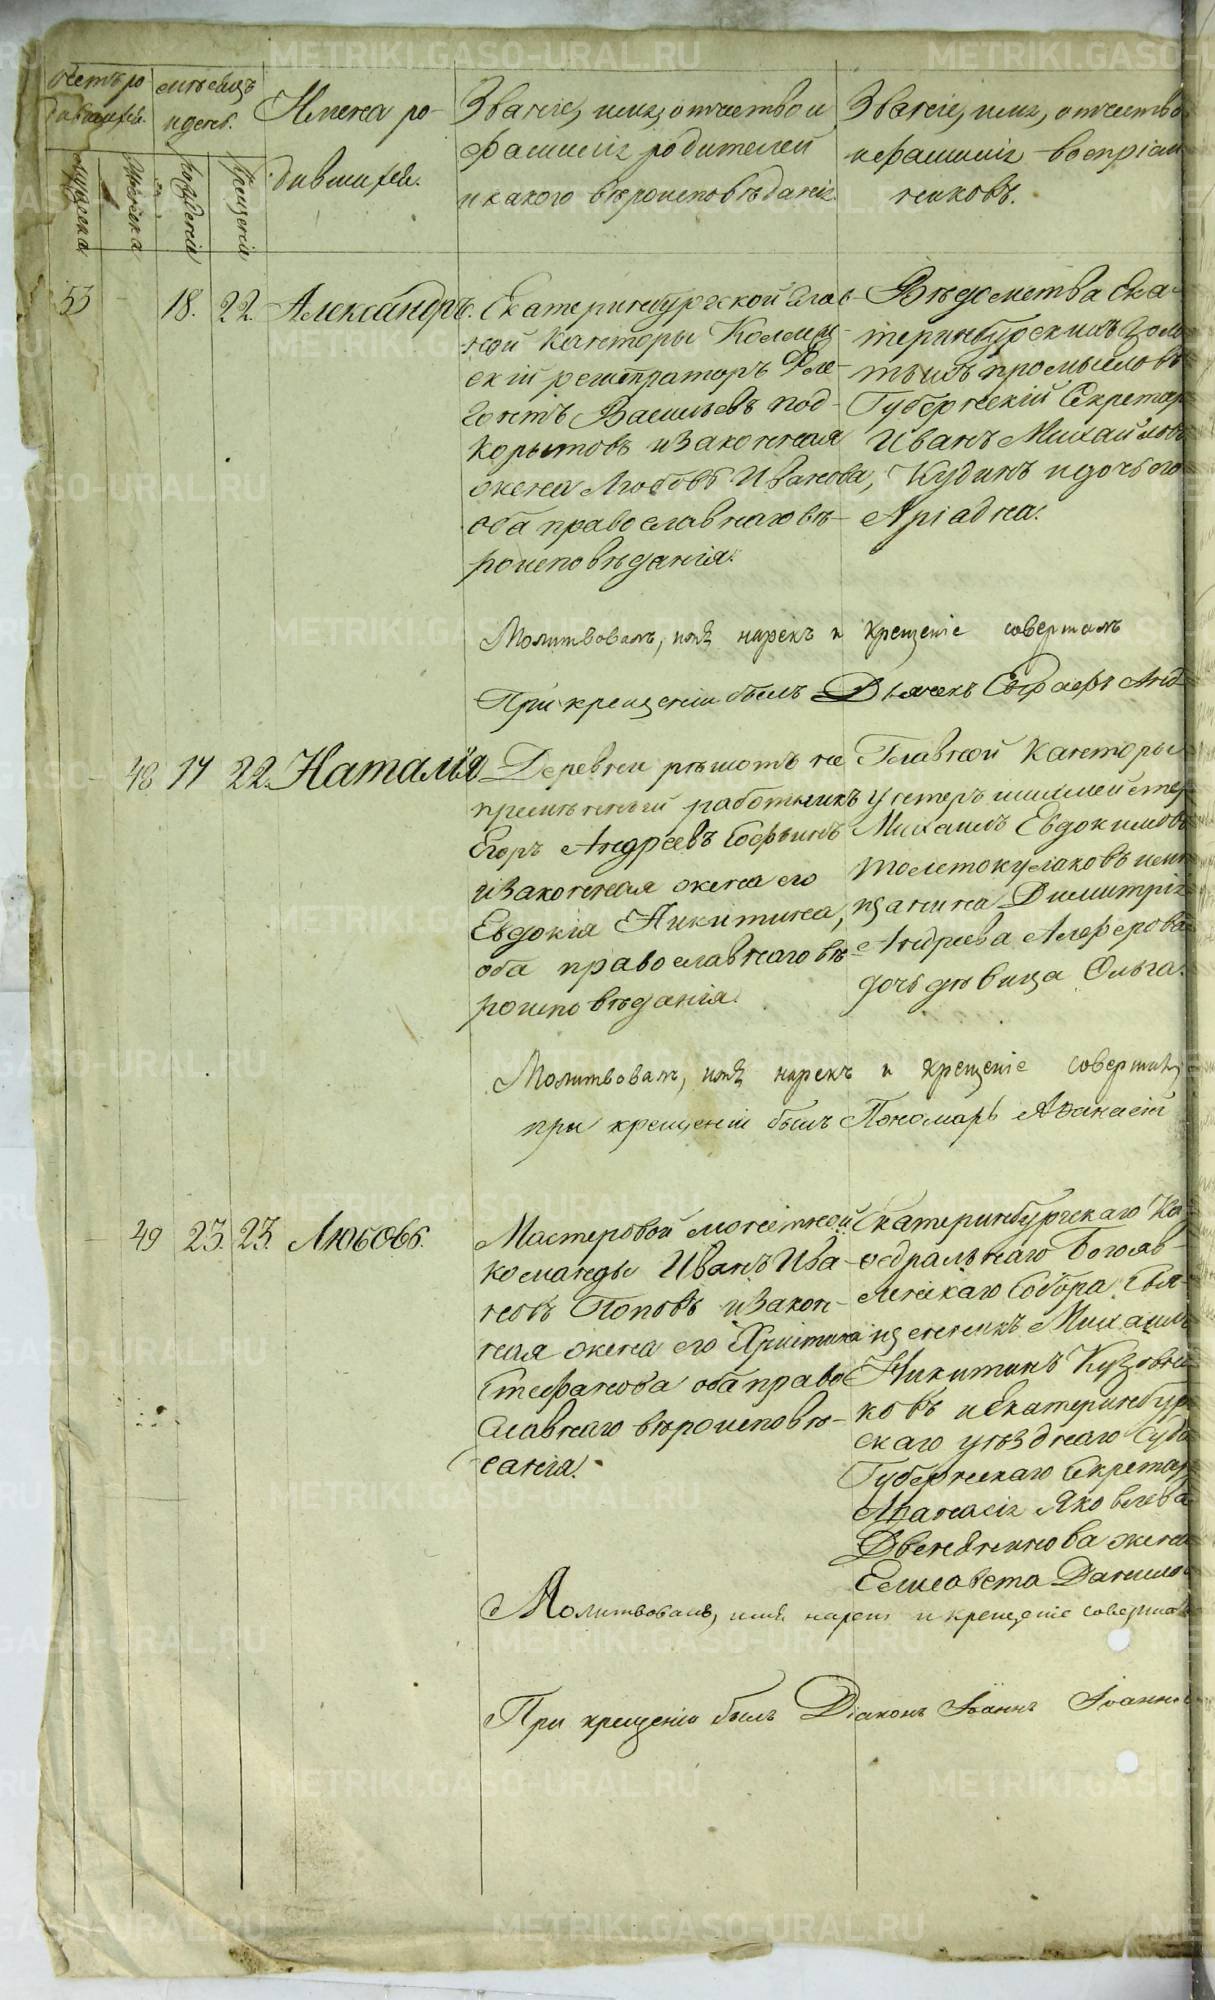 Счетъ ро-
дившихся.
Мѣсяцъ
и день.
Имена ро-
дившихся.
Званіе, имя, отчество и
фамилія родителей
и какого вѣроисповѣданія.
Званіе, имя, отчество
и фамилія воспріем
никовъ.
Мужеска
Женска
Рожденія
Крещенія
53 - 18. 22. Александръ.
Екатеринбургской Глав-
ной Канторы Коллеж-
скій регистраторъ Фле-
гонтъ Васильевъ Под-
корытовъ и законная
жена Любовь Иванова,
оба православнаго вѣ-
роисповѣданія.
Вѣдомства Ека-
теринбурскихъ Золо
тыхъ промысловъ
Губернскій Секретарь
Иванъ Михайловъ
Кудинъ и дочь его
Аріадна.
Молитвовалъ, имя нарекъ и крещеніе совершалъ
При крещеніи былъ Дьячекъ
- 48 17 22. Наталія
Деревни Рѣшотъ не
премѣнный работникъ
Егоръ Андреевъ
и законная жена его
Евдокія Никитина,
оба православнаго вѣ-
роисповѣданія.
Главной Канторы
Унтеръ шихмейстер
Михаилъ Евдокимовъ
Толстокулаковъ и мѣ
щанина Димитрія
Андреева Алферова
дочь дѣвица Ольга.
Молитвовалъ, имя нарекъ и крещеніе
при крещеніи былъ Пономарь Аѳанасій
- 49 23. 23. Любовь.
Мастеровой монетной
команды Иванъ Ива-
новъ Поповъ и закон-
ная жена его Христина
Стефанова оба право
славнаго вѣроисповѣ-
данія.
Екатеринбургскаго Ка-
ѳедральнаго Богояв-
ленскаго Собора Свя-
щенникъ Михаилъ
Никитинъ
ковъ и Екатеринбур
скаго уѣзднаго Суда
Губернскаго Секретар
Аѳанасія Яковлева
жена
Елисавета Данило
Молитвовалъ, имя нарекъ и крещеніе
При крещеніи былъ Діаконъ Іоаннъ